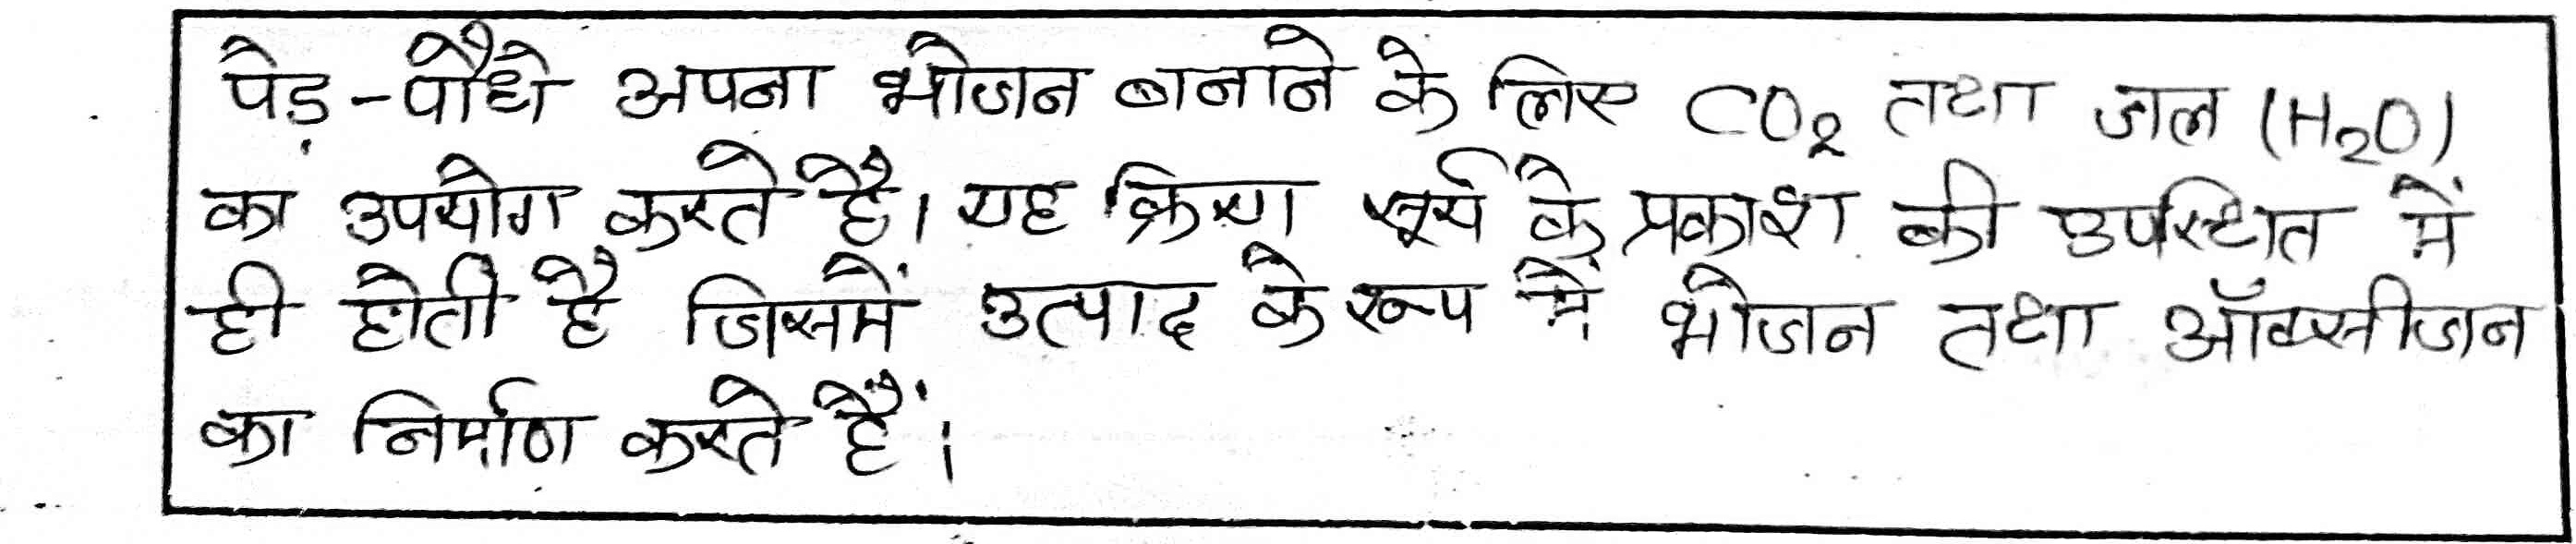 पेड़-पौधे अपना भोजन बनाने के लिए CO₂ तथा जल (H₂O)
का उपयोग करते है। यह क्रिया सूर्य के प्रकाश की उपस्थित में
ही होती है जिसमें उत्पाद के रूप में भोजन तथा ऑक्सीजन
का निर्माण करते हैं।